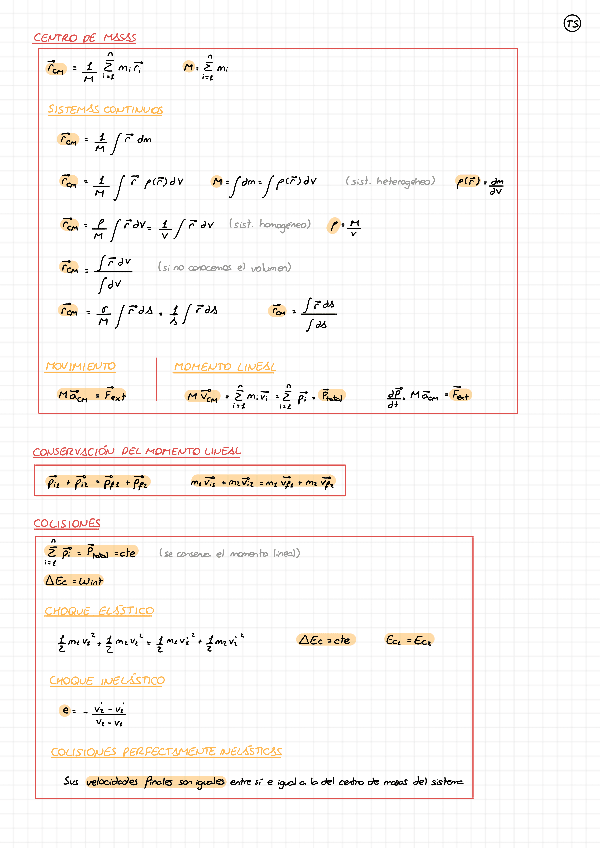 TS
CENTRO DE MASAS
r⃗_CM = 1/M Σ_{i=1}^{n} m_i r⃗_i    M = Σ_{i=1}^{n} m_i
SISTEMAS CONTINUOS
r⃗_CM = 1/M ∫ r⃗ dm
r⃗_CM = 1/M ∫ r⃗ ρ(r⃗) dV    M = ∫ dm = ∫ ρ(r⃗) dV    (sist. heterogéneo)    ρ(r⃗) = dm/dV
r⃗_CM = ρ/M ∫ r⃗ dV = 1/V ∫ r⃗ dV    (sist. homogéneo)    ρ = M/V
r⃗_CM = ∫ r⃗ dV / ∫ dV    (si no conocemos el volumen)
r⃗_CM = σ/M ∫ r⃗ dS = 1/S ∫ r⃗ dS    r⃗_CM = ∫ r⃗ dS / ∫ dS
MOVIMIENTO    MOMENTO LINEAL
M a⃗_CM = F⃗_ext    M v⃗_CM = Σ_{i=1}^{n} m_i v⃗_i = Σ_{i=1}^{n} p⃗_i = P⃗_total    dP⃗/dt = M a⃗_CM = F⃗_ext
CONSERVACIÓN DEL MOMENTO LINEAL
p⃗_i1 + p⃗_i2 = p⃗_f1 + p⃗_f2    m_1 v⃗_i1 + m_2 v⃗_i2 = m_1 v⃗_f1 + m_2 v⃗_f2
COLISIONES
Σ_{i=1}^{n} p⃗_i = P⃗_total = cte    (se conserva el momento lineal)
ΔEc = Wint
CHOQUE ELÁSTICO
1/2 m_1 v_1² + 1/2 m_2 v_2² = 1/2 m_1 v_1'² + 1/2 m_2 v_2'²    ΔEc = cte    Ec_1 = Ec_2
CHOQUE INELÁSTICO
e = - (v_2' - v_1') / (v_2 - v_1)
COLISIONES PERFECTAMENTE INELÁSTICAS
Sus velocidades finales son iguales entre sí e igual a la del centro de masas del sistema